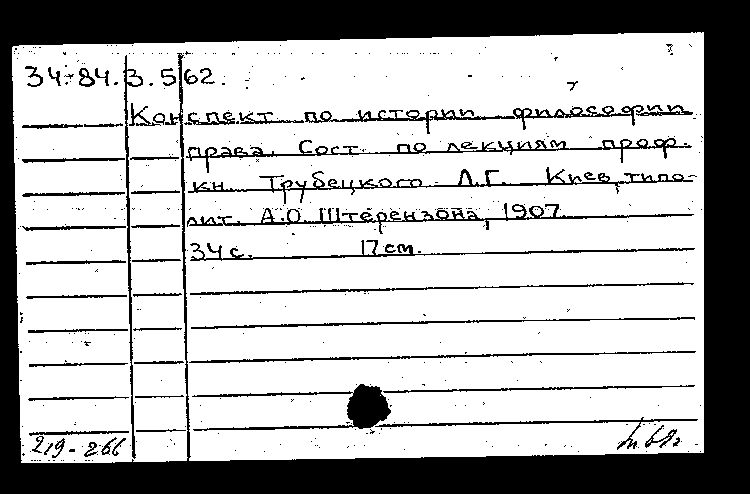 34-84.3.562.
Конспект по истории философии
права. Сост. по лекциям проф.
кн. Трубецкого Л.Г. Киев, типо-
лит. А.О. Штерензона, 1907.
34 с. 17 см.
219-266